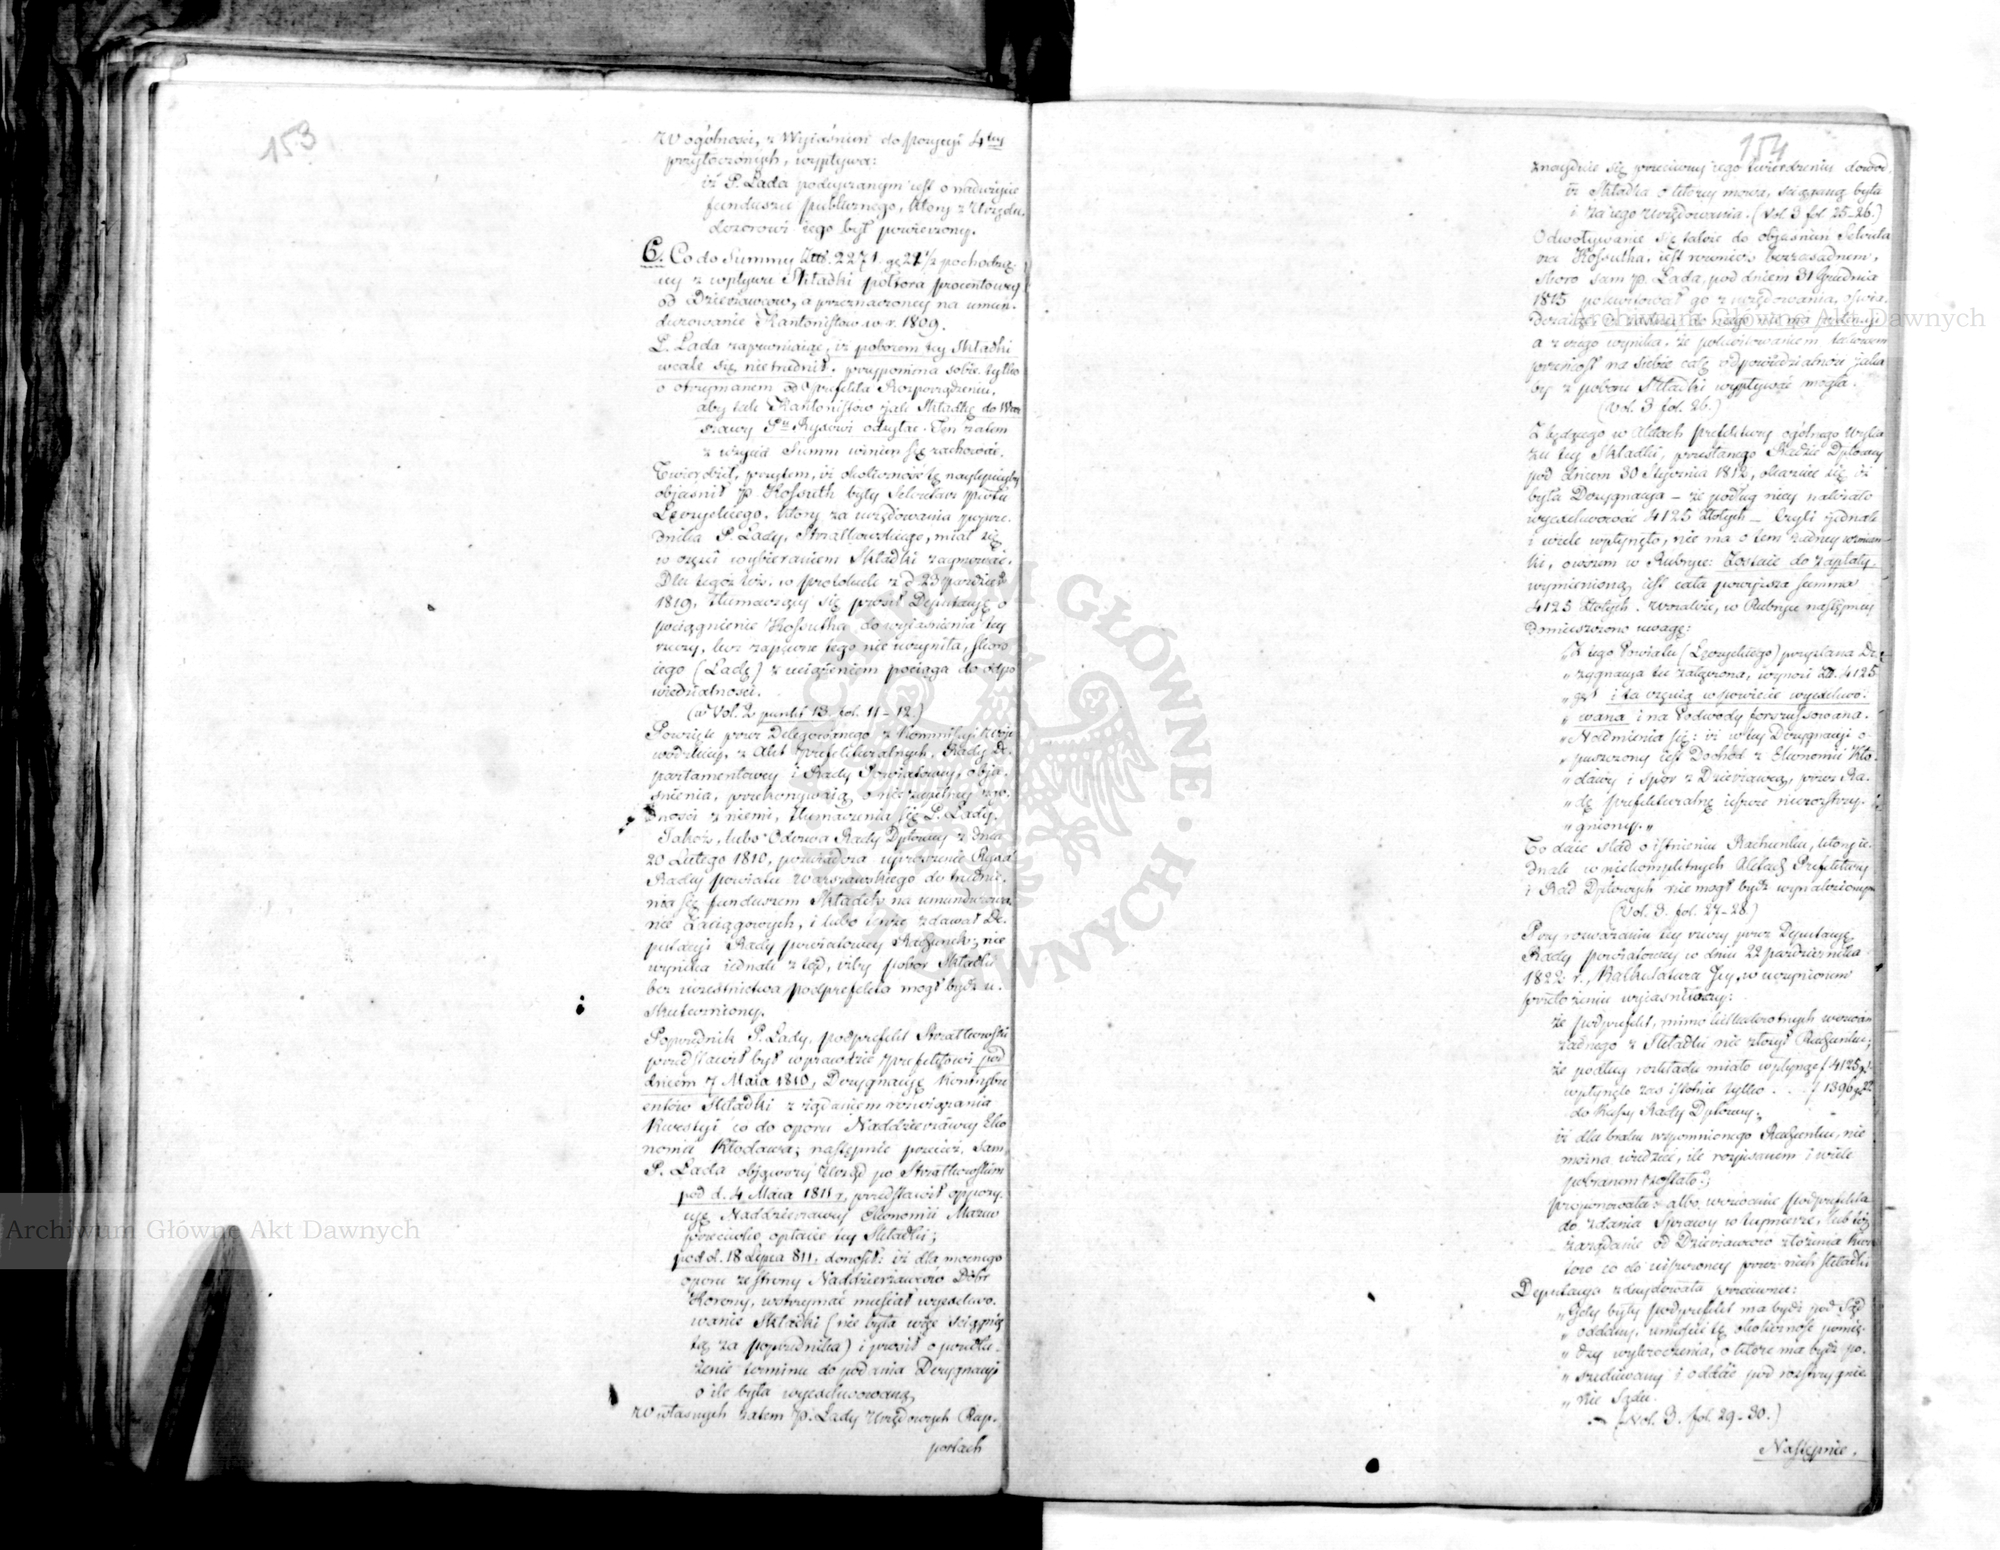 153
W ogólności, z Wyjaśnień do pozycyi 4tey
przytoczonych, wypływa:
iż P. Łada podeyrzanym iest o nadużycie
funduszu publicznego, który z Urzędu
dozorowi iego był powierzony.
6. Co do Summy 2271 pochodzą-
cey z wpływu Składki półtora procentowey
od Dzierżawców, a przeznaczoney na umun-
durowanie Kantonistów w r. 1809.
P. Łada zapewniaiąc, iż poborem tey Składki
wcale się nietrudnił, przypomina sobie tylko
o otrzymanem od Prefekta Rozporządzeniu,
aby tak Kantonistów jak Składkę do War-
szawy Pu Rysowi odsyłać. Ten zatem
z wziętych Summ winien się rachować.
Twierdził, przytem, iż okoliczność tę naylepiey by
objaśnił P. Kossuth były Sekretarz Pwtu
Łęczyckiego, który za urzędowania poprze-
dnika P. Łady, Strzałkowskiego, miał się
w części wybieraniem Składki zaymować.
Dla tegoż też, w protokule z d. 23 paździer.
1819, tłumacząc się prosił Deputacyę o
pociągnienie Kossutha do wyiaśnienia tey
rzeczy, lecz zapewne tego nie uczyniła, skoro
iego (Ładę) z uciążeniem pociąga do odpo
wiedzialności.
(w Vol. 2 punkt 13. fol. 11-12.)
Powzięte przez Delegowanego z Kommissyi Woje
wódzkiey, z Akt Prefekturalnych, Rady De-
partamentowey i Rady Powiatowey, obja-
śnienia, przekonywaią o niezupełney zgo-
dności z niemi, tłumaczenia się P. Łady.
Jakoż, lubo Odezwa Rady Dptowey z dnia
20 Lutego 1810, poświadcza uproszenie Rysa
Radcy powiatu Warszawskiego do trudnie-
nia się funduszem Składek na umundurowa-
nie Zaciągowych, i lubo tenże zdawał De-
putacyi Rady powiatowey Rachunek; nie
wynika jednak z tąd, iżby pobór Składki
bez uczestnictwa podprefekta mógł bydź u-
skuteczniony.
Poprzednik P. Łady, podprefekt Strzałkowski
przedstawił był wprawdzie Prefektowi pod
dniem 7 Maia 1810, Dezygnacyę Kontrybu
entów Składki z żądaniem rozwiązania
Kwestyi co do oporu Naddzierżawcy Eko
nomii Kłodawa; następnie przecież, sam
P. Łada objąwszy Urząd po Strzałkowskim
pod d. 4 Maia 1811 r. przedstawił oppozy-
cyę Naddzierżawcy Ekonomii Mazew
przeciwko opłacie tey Składki;
pod d. 18 Lipca 811, donosił: iż dla mocnego
oporu ze strony Naddzierżawców Dóbr
Korony, wstrzymać musiał wyexekwo-
wanie Składki (nie była więc ściągnię
tą za poprzednika) i prosił o przedłu-
żenie terminu do podania Dezygnacyi
o ile była wyexekwowaną.
W własnych zatem P. Łady Urzędowych Rap-
portach
154
znayduie się przeciwny iego twierdzeniu dowód,
iż Składka o którey mowa, ściąganą była
i za iego urzędowania. (Vol. 3 fol. 25-26.)
Odwoływanie się także do objaśnień Sekreta
rza Kossutha, iest również bezzasadnem,
skoro sam P. Łada, pod dniem 31 Grudnia
1815 pokwitował go z urzędowania, oświa-
dczaiąc, iż żadney do niego nie ma pretensyi
a z czego wynika, że pokwitowaniem takowem
przeniósł na siebie całą odpowiedzialność jaka
by z poboru Składki wypływać mogła.
(Vol. 3 fol. 26.)
Z będącego w Aktach prefektury ogólnego Wyka
zu tey Składki, przesłanego Radzie Dptowey
pod dniem 30 Stycznia 1812, okazuie się, iż
była Dezygnacya – że podług niey należało
wyexekwować 4125 Złotych – Czyli jednak
i wiele wpłynęło, nie ma o tem żadney wzmian-
ki, owszem w Rubryce: Zostaie do zapłaty,
wymienioną iest cała powyższa Summa
4125 Złotych. Wszakże, w Rubryce następney
domieszczono uwagę:
„Z tego Powiatu (Łęczyckiego) przysłana De-
„zygnacya tu załączona, wynosi Zł. 4125
„ i ta częścią w powiecie wyexekwo-
„wana i na Podwody forszussowana.
„Nadmienia się: iż w tey Dezygnacyi o-
„puszczony iest Dochód z Ekonomii Kło-
„dawy i spór z Dzierżawcą, przez Ra-
„dę prefekturalną ieszcze nierozstrzy-
„gniony.„
To daie ślad o istnieniu Rachunku, który je-
dnak w niekompletnych Aktach Prefektury
i Rad Dptowych nie mógł bydź wynalezionym
(Vol. 3. fol. 27-28.)
Przy rozważaniu tey rzeczy przez Deputacyę
Rady powiatowey w dniu 22 października
1822 r., Kalkulatura Jey, w uczynionem
przełożeniu wyiaśniwszy:
że podprefekt, mimo kilkakrotnych wezwań
żadnego z Składki nie złożył Rachunku;
że podług rozkładu miało wpłynąć f 4125
wpłynęło zaś istotnie tylko . . . f 1396 22
do Kassy Rady Dptowey„
iż dla braku wspomnionego Rachunku, nie
można wiedzieć, ile rozpisanem i wiele
pobranem zostało;
proponowała: albo, wezwanie podprefekta
do zdania Sprawy w tey mierze, lub też
zażądanie od Dzierżawców złożenia Kwi
tów co do uiszczoney przez nich Składki
Deputacya zdecydowała przeciwnie:
„Gdy były podprefekt ma bydź pod Sąd
„oddany, umieścić tę okoliczność pomię-
„dzy wykroczenia, o które ma bydź po-
„szukiwany i oddać pod rozstrzygnie-
„nie Sądu.
(Vol. 3. fol. 29-30.)
Następnie.
Archiwum Główne Akt Dawnych
Archiwum Główne Akt Dawnych
ARCHIWUM GŁÓWNE AKT DAWNYCH